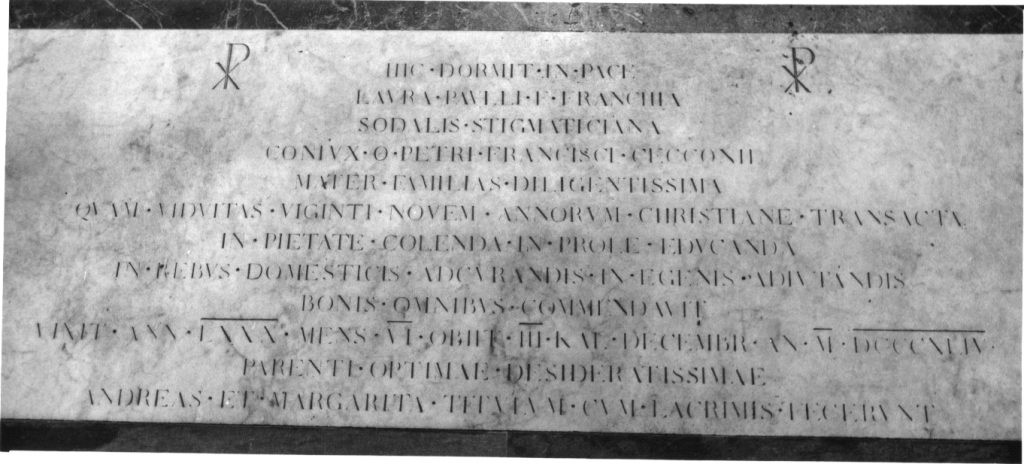 HIC · DORMIT · IN · PACE
LAVRA · PAVLLI · F · FRANCHIA
SODALIS · STIGMATICIANA
CONIVX · O · PETRI · FRANCISCI · CECCONII
MATER · FAMILIAS · DILIGENTISSIMA
QVAM · VIDVITAS · VIGINTI · NOVEM · ANNORVM · CHRISTIANE · TRANSACTA
IN · PIETATE · COLENDA · IN · PROLE · EDVCANDA
IN · REBVS · DOMESTICIS · ADCVRANDIS · IN · EGENIS · ADIVTANDIS
BONIS · OMNIBVS · COMMENDAVIT
VIXIT · ANN · LXXX · MENS · VI · OBIIT · III · KAL · DECEMBR · AN · M · DCCCXLIV ·
PARENTI · OPTIMAE · DESIDERATISSIMAE
ANDREAS · ET · MARGARITA · TITVLVM · CVM · LACRIMIS · FECERVNT